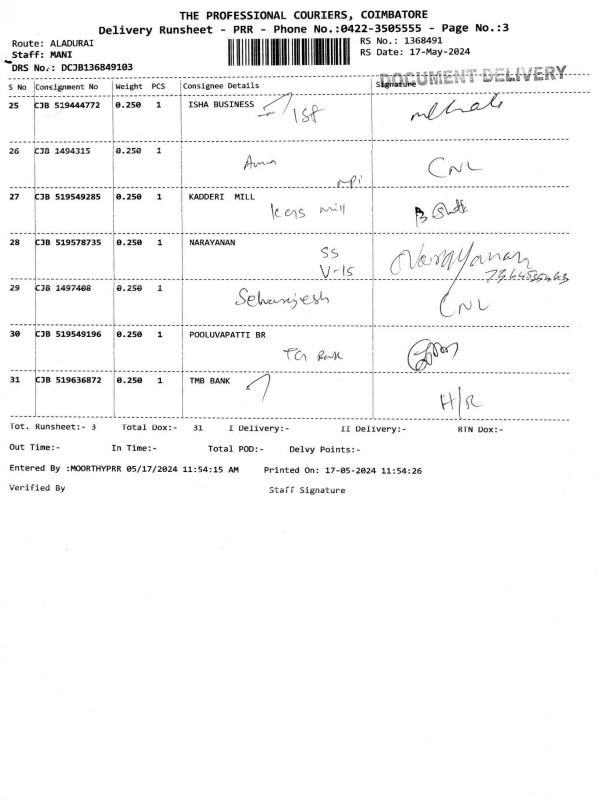 THE PROFESSIONAL COURIERS, COIMBATORE
Delivery Runsheet - PRR - Phone No.:0422-3505555 - Page No.:3
Route: ALADURAI RS No.: 1368491
Staff: MANI RS Date: 17-May-2024
DRS No.: DCJB136849103
DOCUMENT DELIVERY
S No Consignment No Weight PCS Consignee Details Signature
25 CJB 519444772 0.250 1 ISHA BUSINESS
26 CJB 1494315 0.250 1
CNL
27 CJB 519549285 0.250 1 KADDERI MILL
mill
28 CJB 519578735 0.250 1 NARAYANAN Narayanan
SS
V-15
29 CJB 1497408 0.250 1
CNL
30 CJB 519549196 0.250 1 POOLUVAPATTI BR
31 CJB 519636872 0.250 1 TMB BANK
H/R
Tot. Runsheet:- 3 Total Dox:- 31 I Delivery:- II Delivery:- RTN Dox:-
Out Time:- In Time:- Total POD:- Delvy Points:-
Entered By :MOORTHYPRR 05/17/2024 11:54:15 AM Printed On: 17-05-2024 11:54:26
Verified By Staff Signature